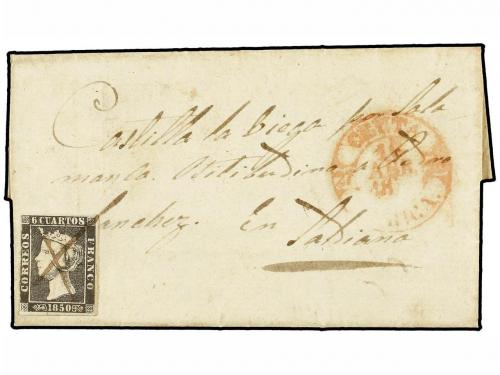 Castilla la Viega por Sala
manca. Vitigudino a Pedro
Sanchez. En
Sahiana
6 CUARTOS
CORREOS
FRANCO
1850